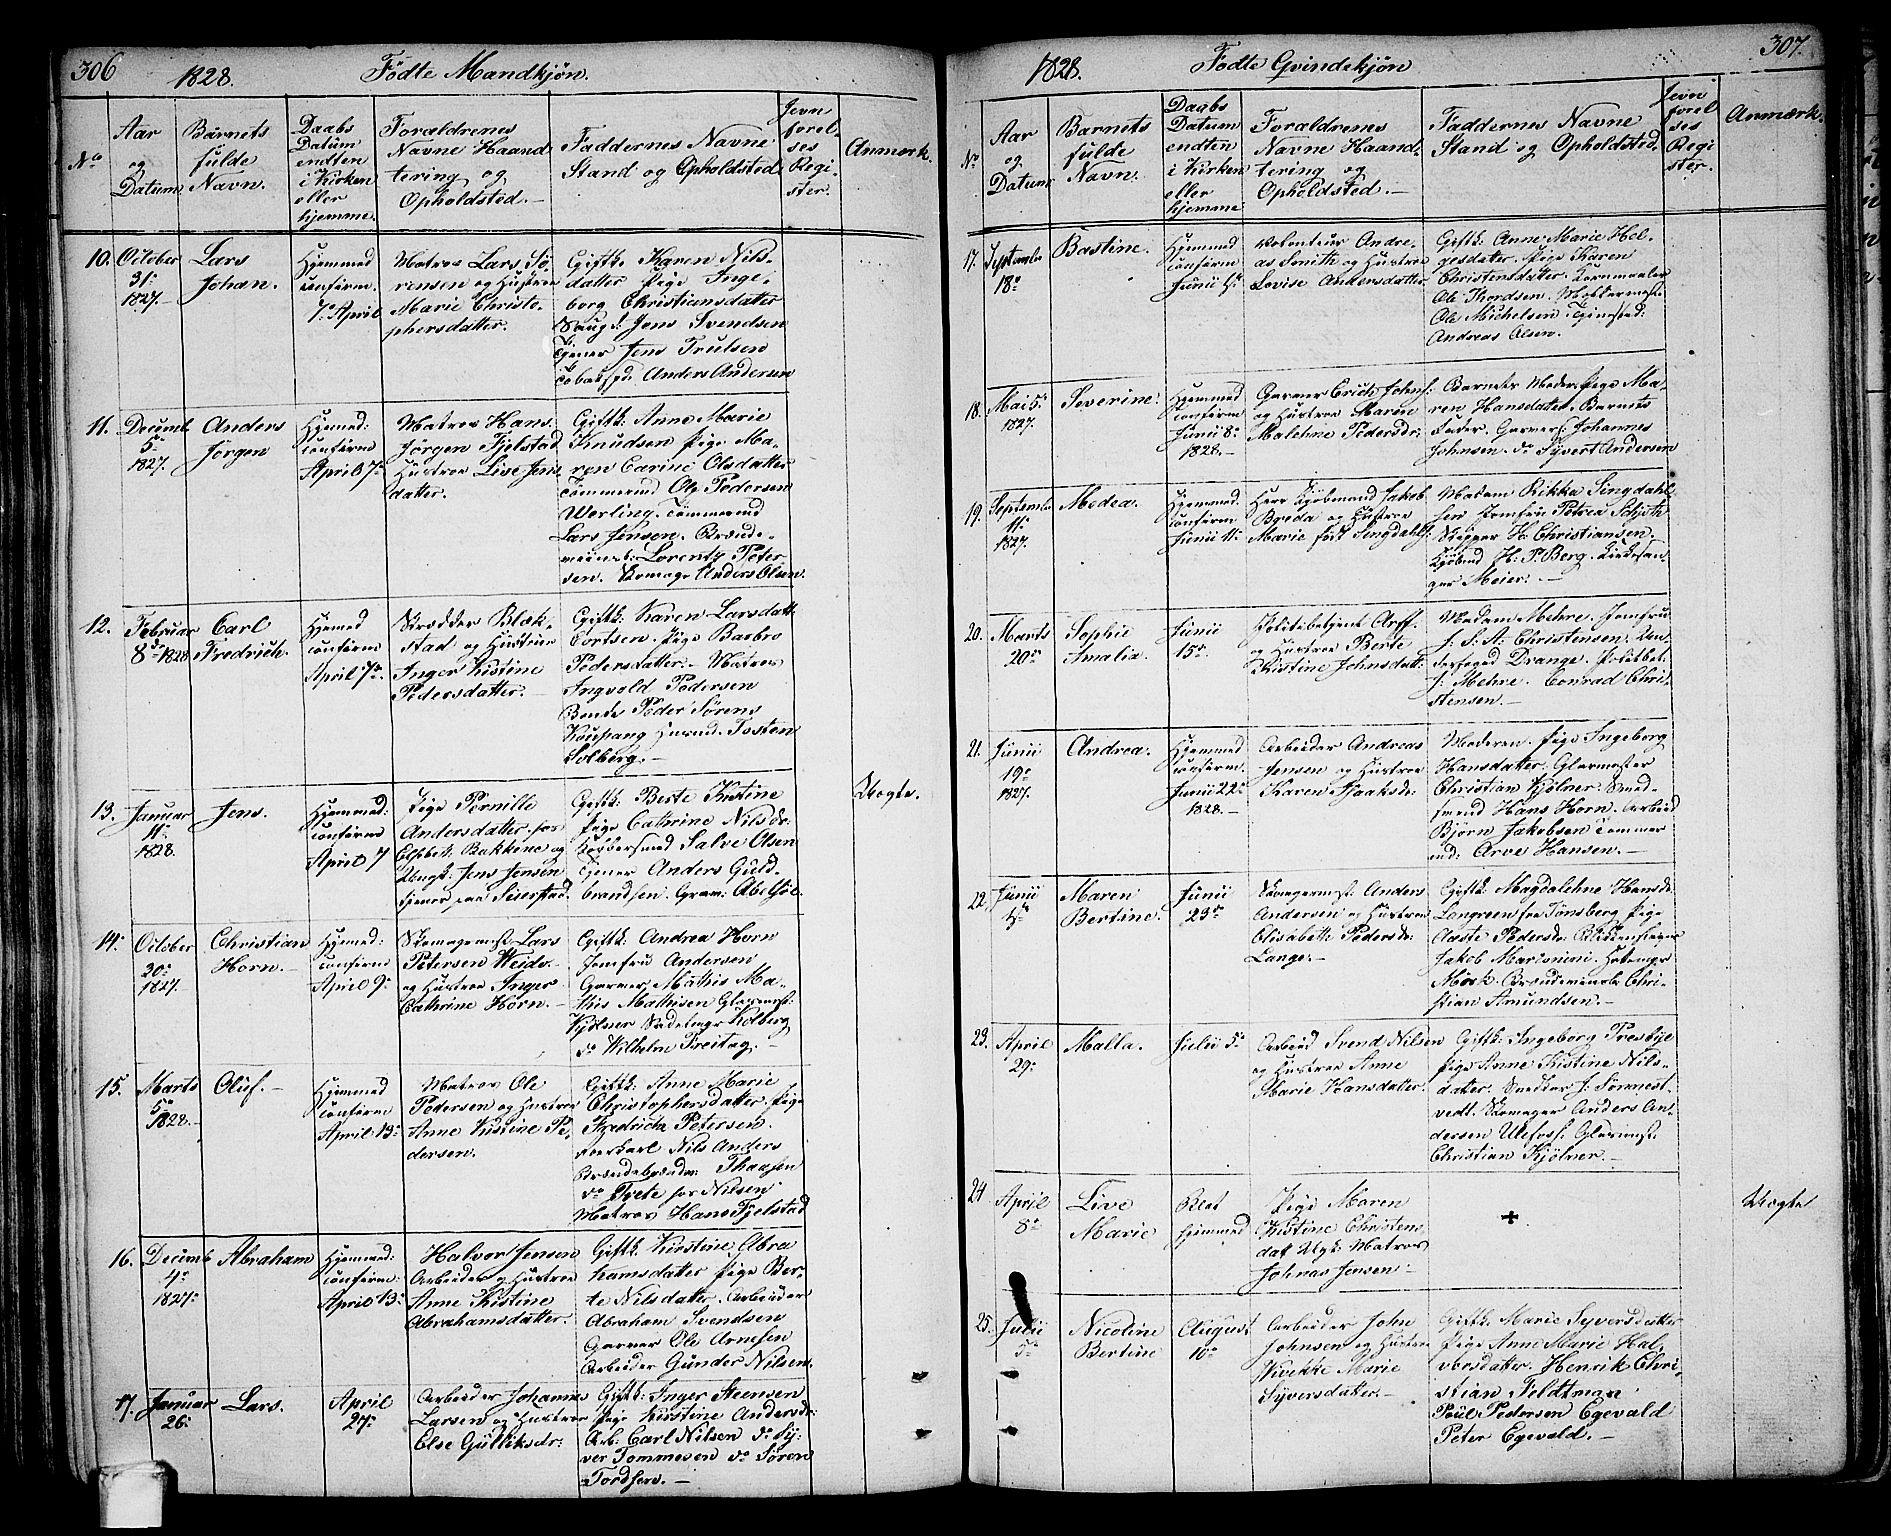 306
1828.
Födte Mandkjön.
No
Aar
og
Datum
Barnets
fulde
Navn.
Daabs
Datum
endten
i Kirken
eller
hjemme.
Forældrenes
Navne Haand
tering og
Opholdsted.
Faddernes Navne
Stand og Opholdsted
Jevn
förel-
ses
Regi-
ster.
Anmærk.
10.
October
31te
1827.
Lars
Johan.
Hjemmed
confirm
7de April
Matros Lars Sö-
rensen og Hustrue
Marie Christo-
phersdatter.
Giftk: Karen Nils-
datter Pige Inge-
borg Christiansdatter
Saugf: Jens Svendsen
Tjener Jens Trulsen
Anders Andersen
11.
Decemb
5te
1827.
Anders
Jörgen
Hjemmed:
confirm
April 7de
Matros Hans
Jörgen Fjelstad
Hustrue Live Jens
datter.
Giftk: Anne Marie
Knudsen Pige Ma-
ren Carine Olsdatter
Tömmermd Ole Pedersen
Werling. Tömmermd
Lars Jensen. Brænde-
viinsb: Lorentz Peter
sen. Skomager Anders Olsen.
12.
Februar
8de 1828
Carl
Fredrich.
Hjemmed
confirm
April 7de
Skrædder Blæk-
stad og Hustrue
Inger Kistine
Pedersdatter.
Giftk: Karen Larsdatt
Cortsen. Pige Barbro
Pedersdatter. Matros
Ingvold Pedersen
Bonde Peder Sörens
Koupang Huusmd. Tosten
Solberg.
13.
Januar
11te
1828.
Jens.
Hjemmed:
confirm
April 7
Pige Pernille
Andersdatter paa
Elsbet: Bakkene og
Ungk: Jens Jensen
tjener paa Seierstad.
Giftk: Berte Kistine
Pige Cathrine Nilsdr.
Kobbersmed Salve Olsen
Tjener Anders Guld
brandsen. Gram: Abelsöe.
Uægte.
14.
October
30te
1827.
Christian
Horn.
Hjemmed:
confirm
April 9de
Skomagermst Lars
Petersen Weide
og Hustrue Inger
Cathrine Horn.
Giftk: Andrea Horn
Jomfru Andersen
Garver Mathis Ma-
this Mathisen Glarmest:
Kjölner Sadelmgr Kolberg
do Wilhelm Freitag.
15.
Marts
5te
1828.
Oluf.
Hjemmed
confirm
April 13de
Matros Ole
Pedersen og Hustrue
Anne Kistine Pe-
dersen.
Giftk: Anne Marie
Christophersdatter. Pige
Fredricke Petersen.
Nils Anders
Thaasen
do Trete for Nilsen
Matros Hans Fjelstad
16.
Decemb
4de
1827.
Abraham
Hjemmed:
confirm:
April 13de
Halvor Jensen
Arbeider og Hustrue
Anne Kistine
Abrahamsdatter.
Giftk: Kirstine Abra
hamsdatter Pige Ber-
te Nilsdatter. Arbeider
Abraham Svendsen
Garver Ole Arnesen
Arbeider Gunder Nilsen.
17.
Januar
26de
Lars.
April
27de
Arbeider Johannes
Larsen og Hustrue
Else Gulliksdr:
Giftk: Inger Steensen
Pige Kirstine Andersdr:
Arb: Carl Nilsen do Sy-
ver Tommesen do Sören
Tordsen.
1828.
Födte Qvindekjön
307.
No
Aar
og
Datum
Barnets
fulde
Navn.
Daabs
Datum
endten
i Kirken
eller
hjemme
Forældrenes
Navne Haand-
tering og
Opholdsted.
Faddernes Navne
Stand og Opholdsted.
Jevn
forel
ses
Regi
ster.
Anmærk.
17.
Septembr
18de
Bastine.
Hjemmed
confirm
Junii 4de
Volonteur Andre-
as Smith og Hustrue
Lovise Andersdatter.
Giftk: Anne Marie Hel-
gesdater. Pige Karen
Christensdatter.
Ole Thordsen.
Ole Michelsen
Andreas Olsen.
18.
Mai 5te
1827.
Severine.
Hjemmed
confirm
Junii 8de
1828.
Garver Erich Johns:
og Hustrue Maren
Malehne Pedersdr:
Barnets Moder. Pige Ma-
ren Hansdatter. Barnets
Fader. Garvers: Johannes
Johnsen. do Syvert Andersen
19.
Septembr
11te
1827.
Medea.
Hjemmed.
confirm
Junii 11te
Herr Kjöbmand Jakob
Breda og Hustrue
Marie födt Singdahls:
Madam Rikka Singdahl-
sen Jomfru Petrea Schjöth
Skipper H. Christiansen
Kjöbmd H: P. Berg. Kirkesan-
ger Meier.
20.
Marts
20de
Sophie
Amalia.
Junii
15de
Politibetjent Arff
og Hustrue Berte
Kristine Johnsdatt:
Madam Mehre. Jomfru
J. S. A: Christensen. Un-
derfoged Drange. Politibet-
j: Mehre. Conrad Chri-
stensen.
21.
Junii
19de
1827.
Andrea.
Hjemmed
confirm.
Junii 22de
1828.
Arbeider Andreas
Jensen og Hustrue
Karen Isaaksdr:
Moderen. Pige Ingeborg
Hansdatter. Glarmester
Christian Kjölner.
Hans Horn. Arbeid
Björn Jakobsen Tömmer
md: Arve Hansen.
22.
Junii
4de
Maren
Bertine.
Junii
23de
Skomagermst: Anders
Andersen og Hustrue
Elisabeth Pedersdr:
Lange.
Giftk: Magdalehne Hansdr:
Langreen fra Tönsberg Pige
Aaste Pedersdr: Blikkenslager
Jakob Marinini.
Mörk. Brændeviinsb: Chri-
stian Amundsen.
23.
April
29de
Malla.
Julii 5te
Arbeid Svend Nilsen
og Hustrue Anne
Marie Hansdatter.
Giftk: Ingeborg Tresbye
Pige Anne Kistine Nils-
datter. Snedker J: Sonnest-
vedt. Skomager Anders An-
dersen Ulefos: Glarmst:
Christian Kjölner.
24
April
8de
Live
Marie
Blot
hjemmed
Pige Maren
Kistine Christens
dat Ugk: Matros
Johnas Jensen.
+
Uægte
25.
Julii
5te
Nicoline
Bertine
August
10de
Arbeider John
Johnsen og Hustrue
Wivekke Marie
Syversdatter.
Giftk: Marie Syversdatter
Pige Anne Marie Hal-
vorsdatter. Henrik Chri-
stian Feldtman
Poul Pedersen Egevald
Peter Egevald.